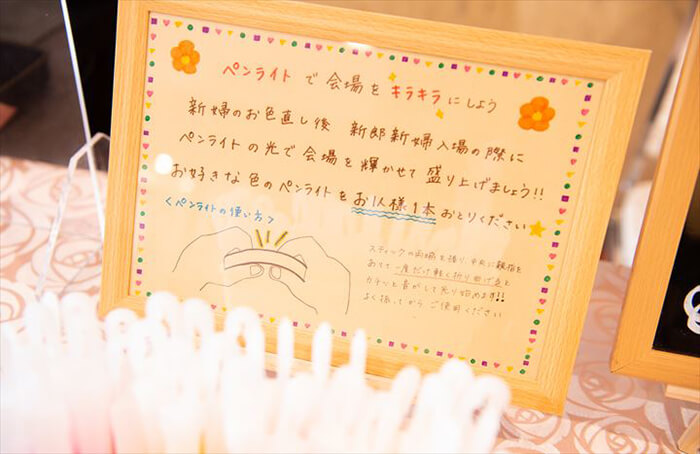 ペンライトで会場をキラキラにしよう
新婦のお色直し後 新郎新婦入場の際に
ペンライトの光で会場を輝かせて盛り上げましょう!!
お好きな色のペンライトをお1人様1本おとりください
<ペンライトの使い方>
スティックの両端を持り中央に親指を
あてて一度だけ軽く折り曲げると
カチッと音がして光り始めます!!
よく振ってからご使用ください